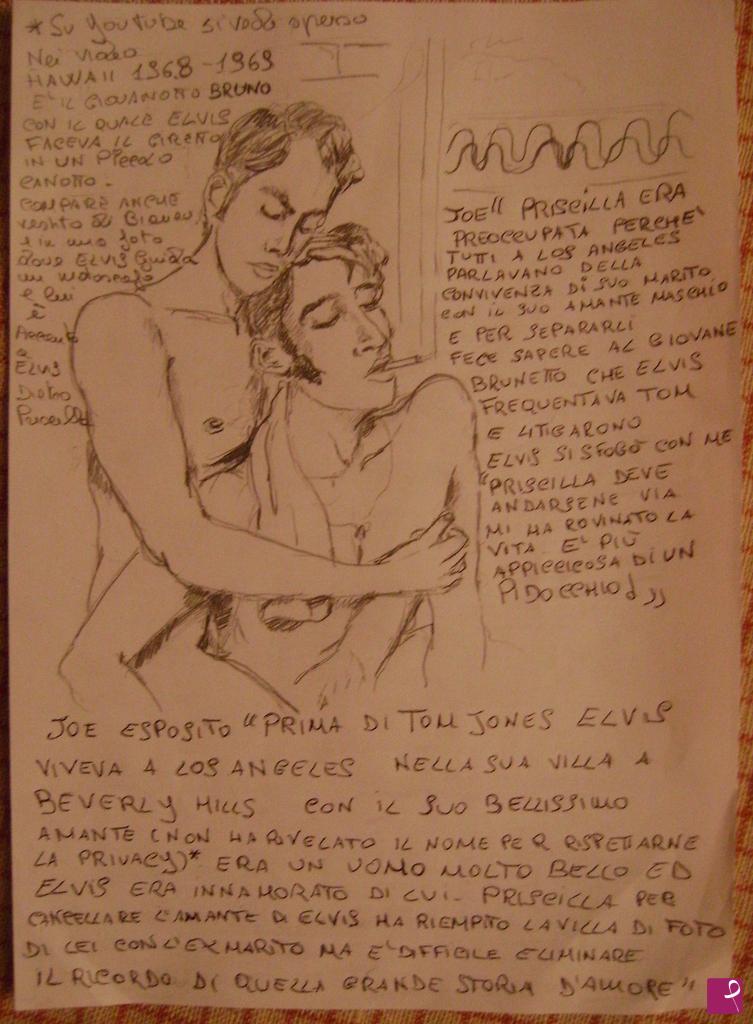 * Su YouTube si vede spesso
Nei video
HAWAII 1968-1969
E' IL GIOVANOTTO BRUNO
CON IL QUALE ELVIS
FACEVA IL GIRETTO
IN UN PICCOLO
CANOTTO.
COMPARE ANCHE
vestito di Bianco,
e in una foto
dove ELVIS Guida
un motoscafo
e lui
è
Accanto
a
ELVIS
Dietro
Priscilla
JOE" PRISCILLA ERA
PREOCCUPATA PERCHE'
TUTTI A LOS ANGELES
PARLAVANO DELLA
CONVIVENZA DI SUO MARITO
CON IL SUO AMANTE MASCHIO
E PER SEPARARLI
FECE SAPERE AL GIOVANE
BRUNETTO CHE ELVIS
FREQUENTAVA TOM
E LITIGARONO
ELVIS SI SFOGÒ CON ME
"PRISCILLA DEVE
ANDARSENE VIA
MI HA ROVINATO LA
VITA E' PIÙ
APPICCICOSA DI UN
PIDOCCHIO! ,,
JOE ESPOSITO "PRIMA DI TOM JONES ELVIS
VIVEVA A LOS ANGELES NELLA SUA VILLA A
BEVERLY HILLS CON IL SUO BELLISSIMO
AMANTE (NON HA RIVELATO IL NOME PER RISPETTARNE
LA PRIVACY)* ERA UN UOMO MOLTO BELLO ED
ELVIS ERA INNAMORATO DI LUI. PRISCILLA PER
CANCELLARE L'AMANTE DI ELVIS HA RIEMPITO LA VILLA DI FOTO
DI LEI CON L'EX MARITO MA E' DIFFICILE ELIMINARE
IL RICORDO DI QUELLA GRANDE STORIA D'AMORE"